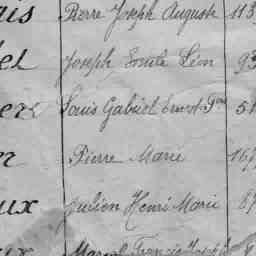 ais Pierre Joseph Auguste 113
el Joseph Emile Léon 93
er Louis Gabriel Ernest 51
er Pierre Marie 167
ux Julien Henri Marie 87
ux Marcel Francis Joseph